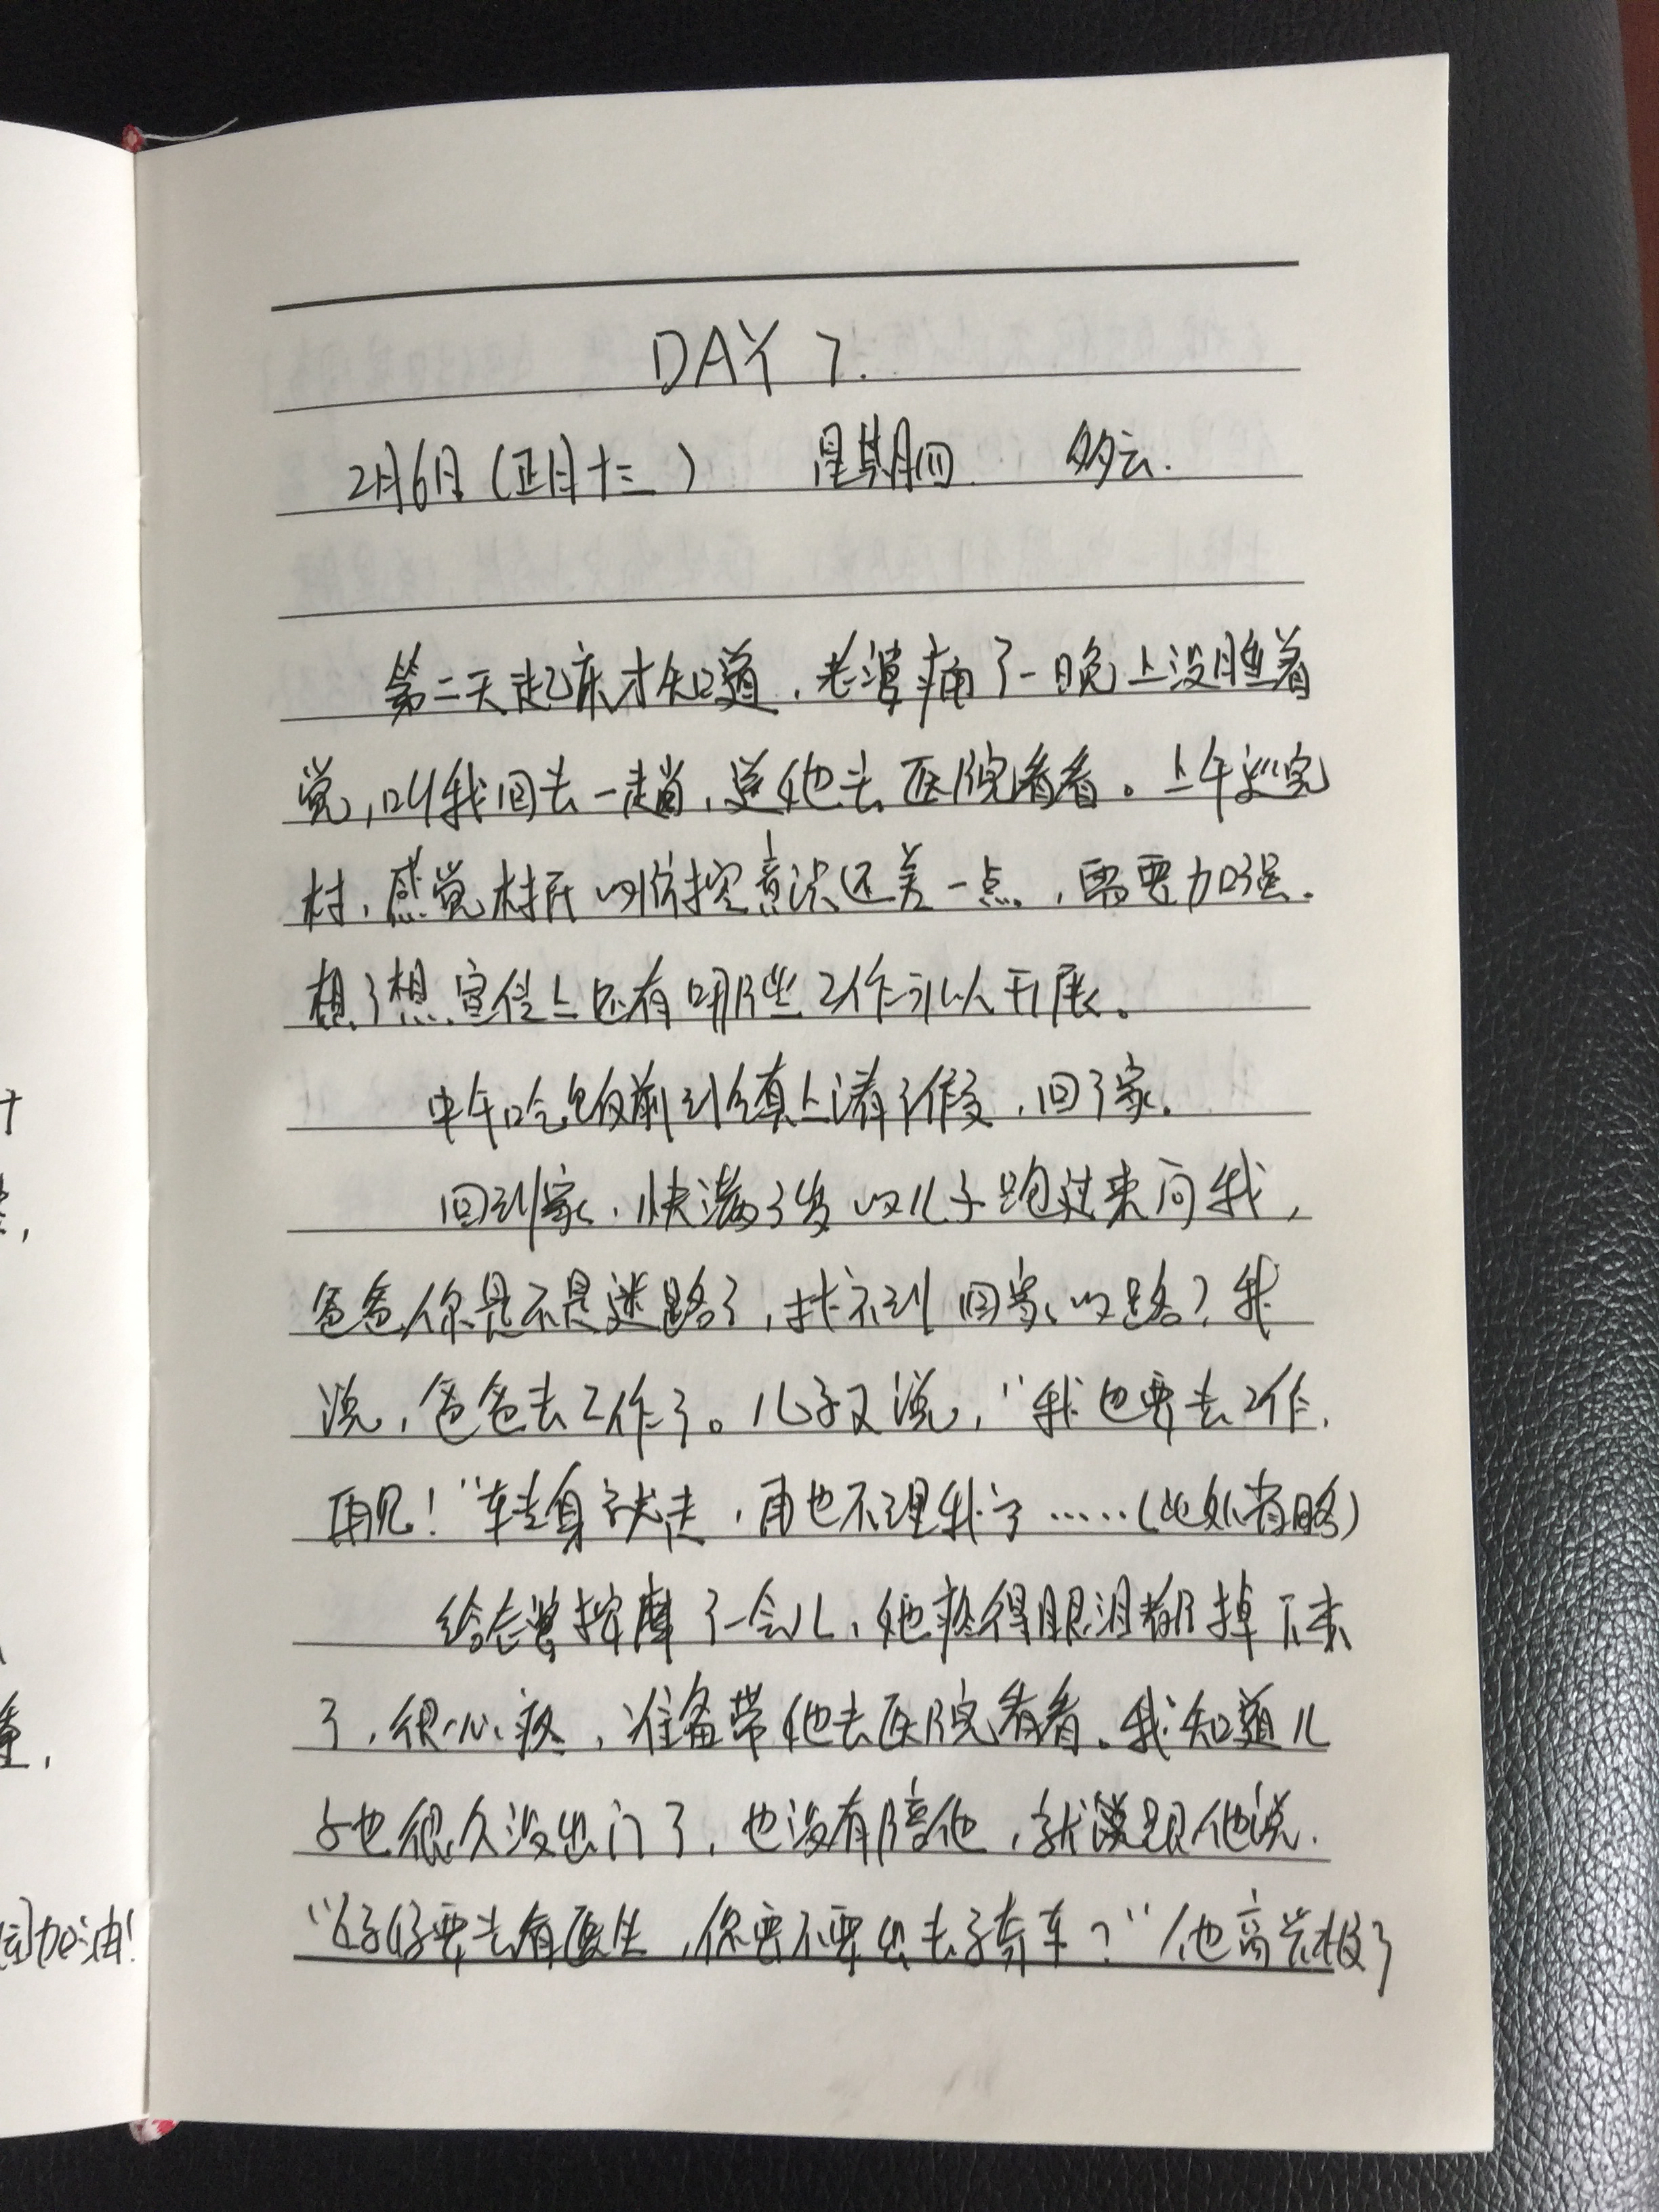 DAY 7.
2月6日(正月十三) 星期四 多云.
第二天起床才知道,老婆痛了一晚上没睡着
觉,叫我回去一趟,送她去医院看看。上午巡完
村,感觉村民的防控意识还差一点,需要加强.
想了想宣传上还有哪些工作可以开展。
中午吃饭前到镇上请了假,回了家.
回到家,快满3岁的儿子跑过来问我,
爸爸你是不是迷路了,找不到回家的路?我
说,爸爸去工作了。儿子又说,“我也要去工作,
再见!”转身就走,再也不理我了……(此处省略)
给老婆按摩了一会儿,她疼得眼泪都掉下来
了,很心疼,准备带她去医院看看。我知道儿
子也很久没出门了,也没有陪他,就跟他说.
“妈妈要去看医生,你要不要出去了乘车?”他高兴极了
加油!